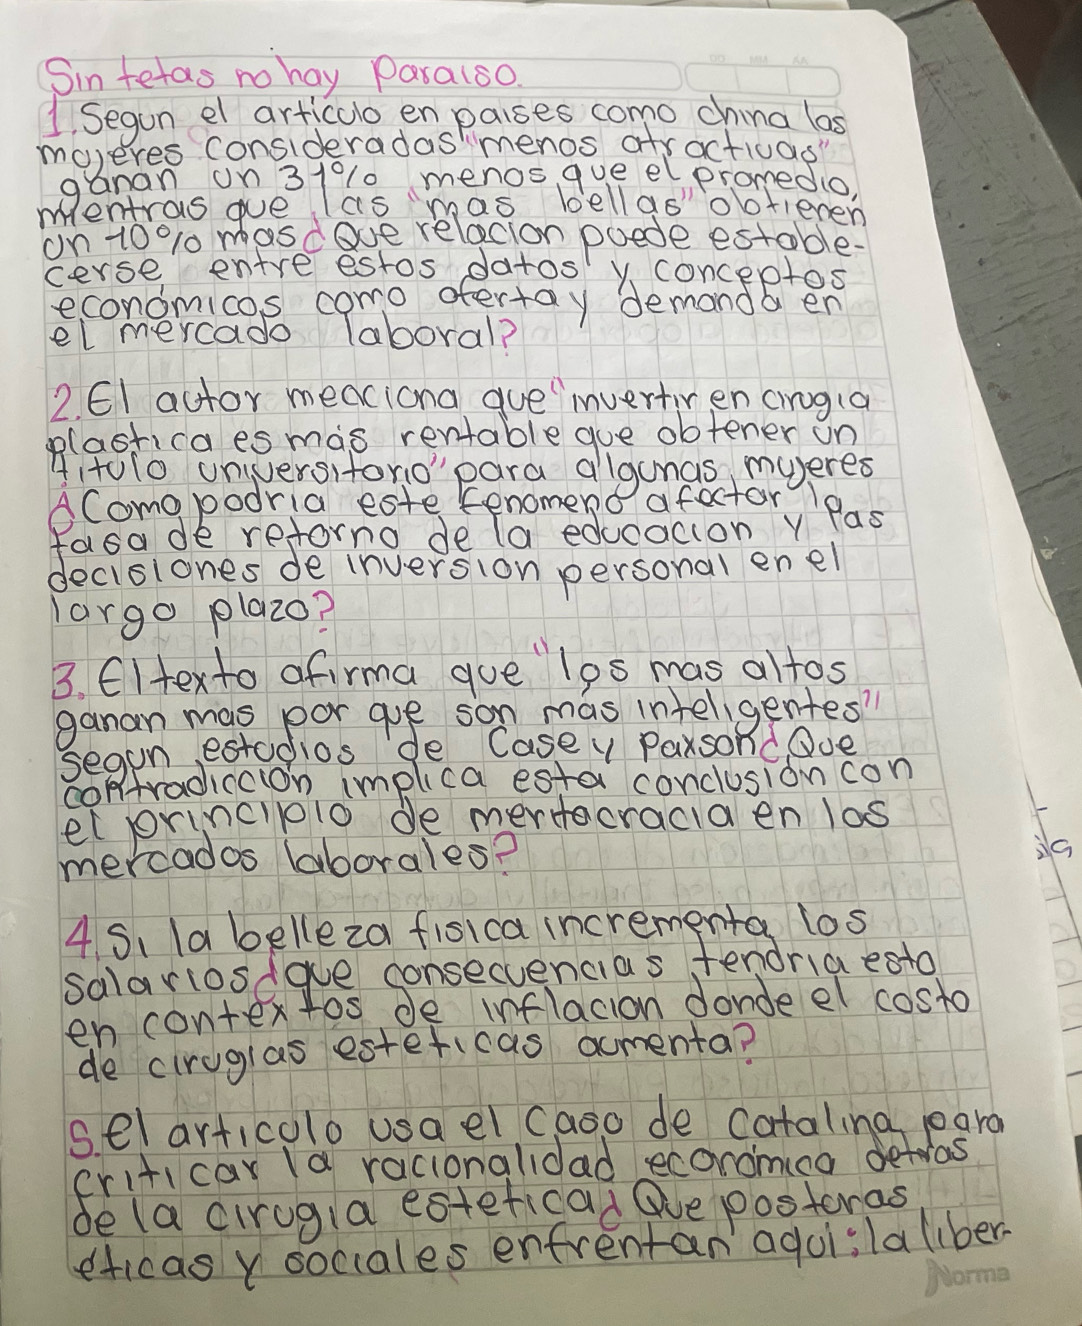 Sin tetas no hay Paraiso.
DD MM AA
1. Segun el articulo en paises como china las
mujeres consideradas "menos atractivas"
ganan un 31% menos que el promedio,
mientras que las "mas bellas" obtienen
un 10% mas ¿Que relacion puede estable-
cerse entre estos datos y conceptos
económicos como oferta y demanda en
el mercado laboral?
2. El autor menciona que "invertir en cirugia
plastica es más rentable que obtener un
titulo universitario" para algunas mujeres
¿Como podria este fenomeno afectar la
tasa de retorno de la educacion y las
decisiones de inversion personal en el
largo plazo?
3. El texto afirma que "los mas altos
ganan mas por que son más inteligentes"
segun estudios de Case y Paxson ¿Que
contradicción implica esta conclusión con
el principio de meritocracia en los
mercados laborales?
4. Si la belleza fisica incrementa los
salarios ¿que consecuencias tendria esto
en contextos de inflacion donde el costo
de cirugias esteticas aumenta?
5. el articulo usa el Caso de Catalina para
criticar la racionalidad económica detras
de la cirugia estetica ¿Que posturas
eticas y sociales enfrentan aqui: la liber-
Norma